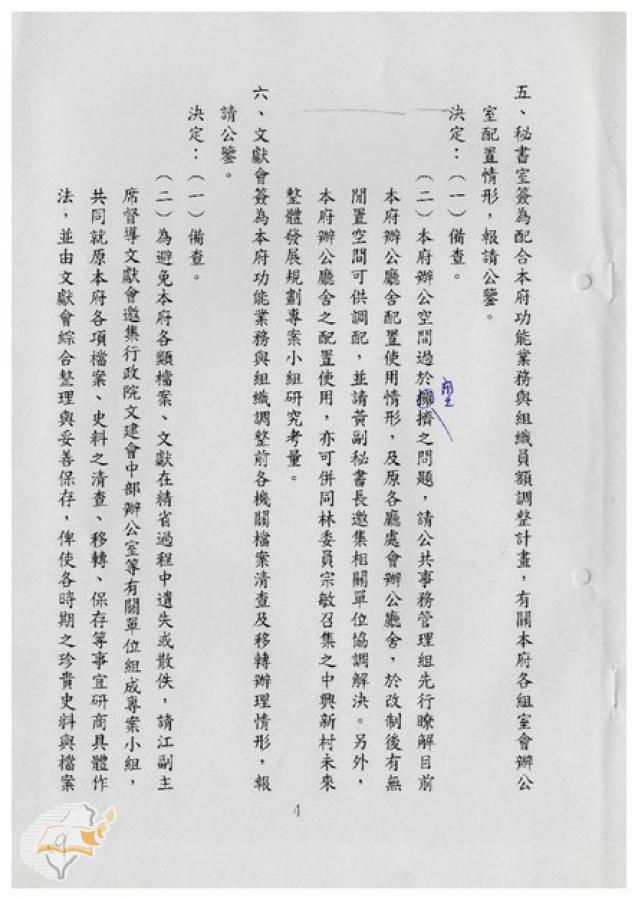 五、秘書室簽為配合本府功能業務與組織員額調整計畫,有關本府各組室會辦公
室配置情形,報請公鑒。
決定:(一)備查。
(二)本府辦公空間過於擁擠之問題,請公共事務管理組先行瞭解目前
本府辦公廳舍配置使用情形,及原各廳處會辦公廳舍,於改制後有無
閒置空間可供調配,並請黃副秘書長邀集相關單位協調解決。另外,
本府辦公廳舍之配置使用,亦可併同林委員宗敏召集之中興新村未來
整體發展規劃專案小組研究考量。
六、文獻會簽為本府功能業務與組織調整前各機關檔案清查及移轉辦理情形,報
請公鑒。
決定:(一)備查。
(二)為避免本府各類檔案、文獻在精省過程中遺失或散佚,請江副主
席督導文獻會邀集行政院文建會中部辦公室等有關單位組成專案小組,
共同就原本府各項檔案、史料之清查、移轉、保存等事宜研商具體作
法,並由文獻會綜合整理與妥善保存,俾使各時期之珍貴史料與檔案
4